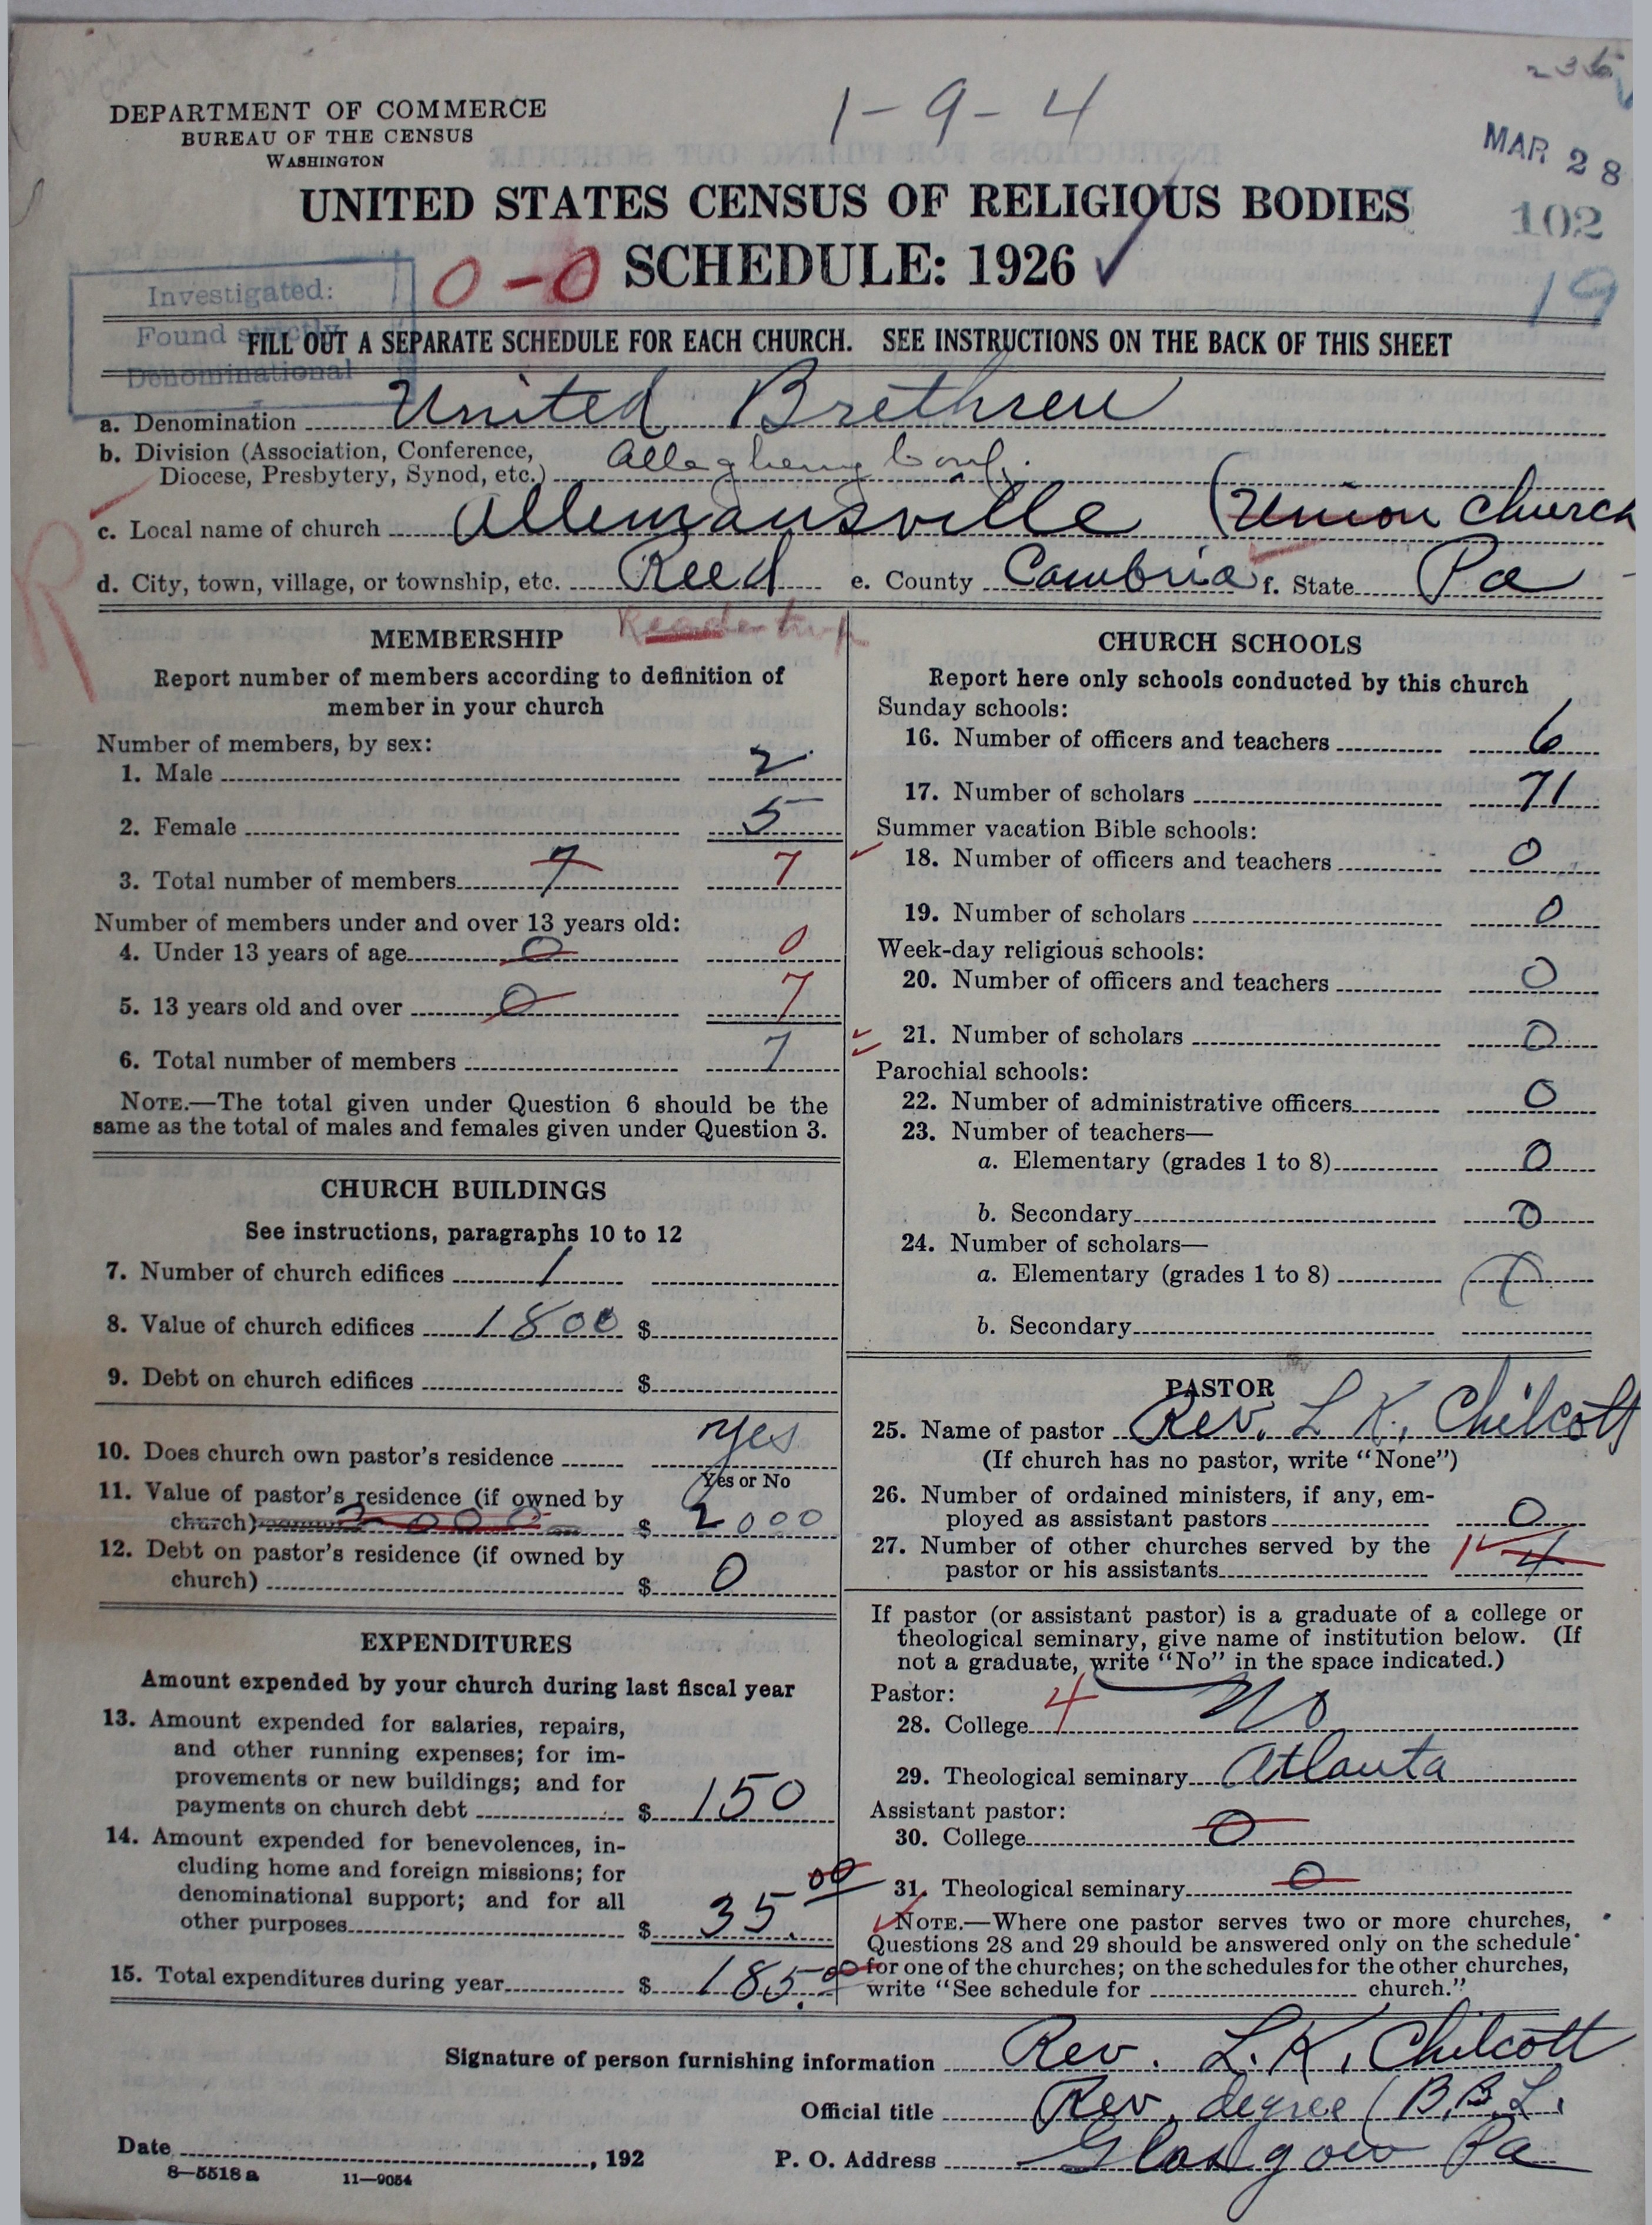 236
1-9-4
DEPARTMENT OF COMMERCE
BUREAU OF THE CENSUS
WASHINGTON
MAR 28
102
19
UNITED STATES CENSUS OF RELIGIOUS BODIES
SCHEDULE: 1926
0-0
Investigated:
Found strictly
Denominational
FILL OUT A SEPARATE SCHEDULE FOR EACH CHURCH. SEE INSTRUCTIONS ON THE BACK OF THIS SHEET
a. Denominatión United Brethren
b. Division (Association, Conference,
Diocese, Presbytery, Synod, etc.) Allegheny Conf.
c. Local name of church Allemansville (Union Church
R
d. City, town, village, or township, etc. Reed e. County Cambria f. State Pa
MEMBERSHIP
Reade twp
Report number of members according to definition of
member in your church
Number of members, by sex:
1. Male 2
2. Female 5
3. Total number of members 7 7
Number of members under and over 13 years old:
4. Under 13 years of age 0 0
5. 13 years old and over 0 7
6. Total number of members 7
NOTE.—The total given under Question 6 should be the
same as the total of males and females given under Question 3.
CHURCH BUILDINGS
See instructions, paragraphs 10 to 12
7. Number of church edifices 1
8. Value of church edifices 1800 $
9. Debt on church edifices $
10. Does church own pastor's residence yes
Yes or No
11. Value of pastor's residence (if owned by
church) 2000 $ 2000
12. Debt on pastor's residence (if owned by
church) $ 0
EXPENDITURES
Amount expended by your church during last fiscal year
13. Amount expended for salaries, repairs,
and other running expenses; for im-
provements or new buildings; and for
payments on church debt $ 150
14. Amount expended for benevolences, in-
cluding home and foreign missions; for
denominational support; and for all
other purposes $ 35.00
15. Total expenditures during year $ 185.00
CHURCH SCHOOLS
Report here only schools conducted by this church
Sunday schools:
16. Number of officers and teachers 6
17. Number of scholars 71
Summer vacation Bible schools:
18. Number of officers and teachers 0
19. Number of scholars 0
Week-day religious schools:
20. Number of officers and teachers 0
21. Number of scholars 0
Parochial schools:
22. Number of administrative officers 0
23. Number of teachers—
a. Elementary (grades 1 to 8) 0
b. Secondary 0
24. Number of scholars—
a. Elementary (grades 1 to 8)
b. Secondary
PASTOR
25. Name of pastor Rev. L. K. Chilcott
(If church has no pastor, write "None")
26. Number of ordained ministers, if any, em-
ployed as assistant pastors 0
27. Number of other churches served by the
pastor or his assistants 4
If pastor (or assistant pastor) is a graduate of a college or
theological seminary, give name of institution below. (If
not a graduate, write "No" in the space indicated.)
Pastor:
28. College 4 No
29. Theological seminary Atlanta
Assistant pastor:
30. College 0
31. Theological seminary 0
NOTE.—Where one pastor serves two or more churches,
Questions 28 and 29 should be answered only on the schedule
for one of the churches; on the schedules for the other churches,
write "See schedule for church."
Signature of person furnishing information Rev. L. K. Chilcott
Official title Rev. degree (B.B.L.
Date , 192
P. O. Address Glasgow Pa
8—5518 a 11—9054